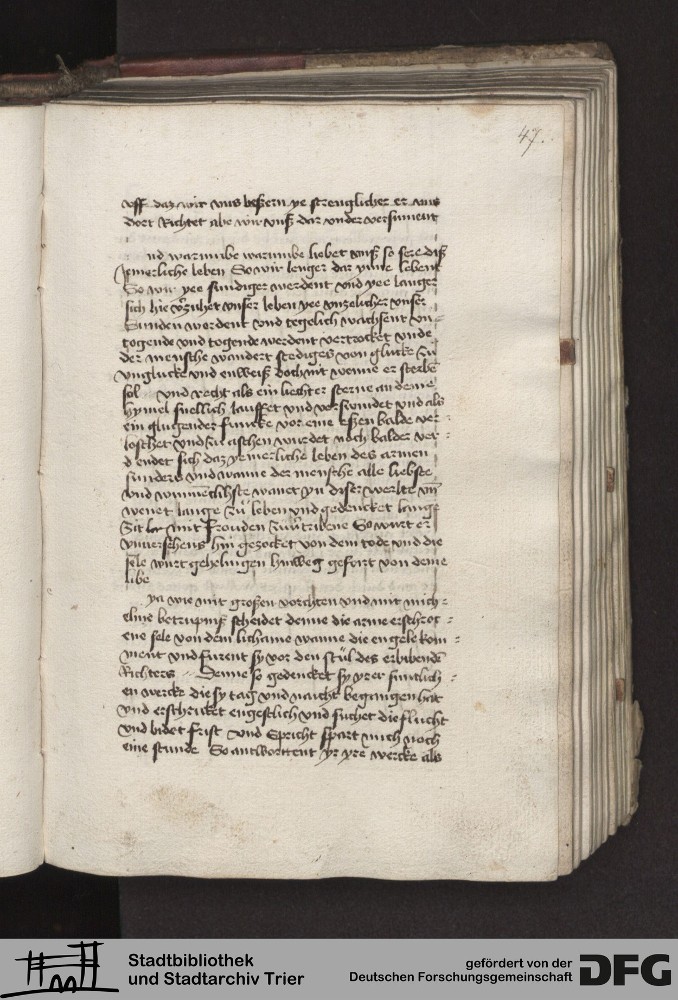 47.
vff daz wir vns beßern ye strenglicher er vns
dort Richtet abe wir vnß dar vnder versument
nd warumbe warumbe liebet vnß so sere diß
Jemerliche leben So wir lenger dar ynne lebent
So wir yee sundiger werdent vnd yee langer
sich hie vnser leben yee vnzelicher vnser
Sunden werdent vnd tegelich wachsent vn
togende vnd togende werdent vertrocket vnde
der mensche wandert stediges von glucke zü
vnglucke vnd enweiß doch nit wenne er sterbē
sol vnd recht als ein liechter sterne an deme
hymel snellich lauffet vnd verswindet vnd als
ein glugender funcke vor eine eßen balde ver-
loschet vnd zu aschen wurdet noch balder ver-
d endet sich daz yemerliche leben des armen
sunders vnd wanne der mensche alle liebste
vnd wanet yn diser werlte vn̄
wenet lange zü leben vnd gedencket lange
zit mit frouden So wurt er
vnuersehens hin gezocket von dem tode vnd die
sele wurt gehelingen hinweg gefort von deme
libe
ya wie mit großen vorchten vnd mit mich-
elme betrupniß scheidet denne die arme erschroc-
ene sele von dem lichame wanne die engele kom-
ment vnd furent sy vor den stül des erbibenden
Richters Denne so gedencket sy yrer suntlich-
en wercke die sy tag vnd nacht begangen hat
vnd erschricket engestlich vnd suchet die flucht
vnd bidet frist vnd spricht spart mich noch
eine stunde So antwortent yr yre wercke als
Stadtbibliothek
und Stadtarchiv Trier
gefördert von der
Deutschen Forschungsgemeinschaft
DFG